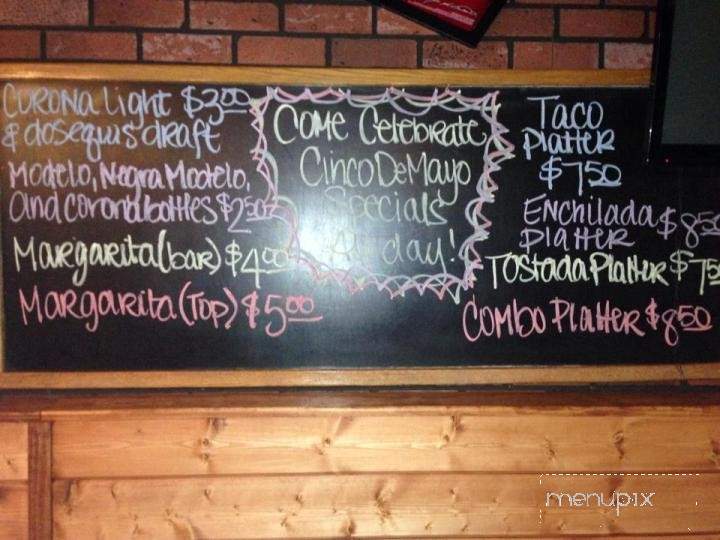 Corona Light $3.00
& dosequis draft
Modelo, Negra Modelo,
and Corona bottles $2.50
Margarita (bar) $4.00
Margarita (Top) $5.00
Come Celebrate
Cinco De Mayo
Specials
All day!
Taco
Platter
$7.50
Enchilada $8.50
Platter
Tostada Platter $7.50
Combo Platter $8.50
menupix